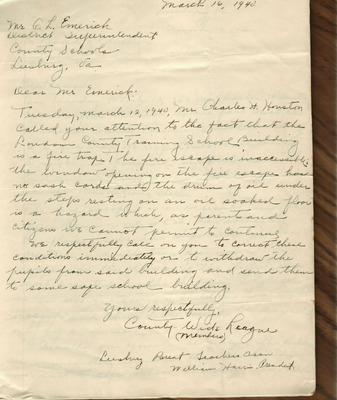 March 16, 1940
Mr O. L. Emerick
District Superintendent
County Schools
Leesburg, Va
Dear Mr Emerick:
Tuesday, March 12, 1940, Mr Charles H. Houston
called your attention to the fact that the
Loudoun County Training School Building
is a fire trap, the fire escape is inaccessible
the window opening on the fire escape has
no sash cords and the drum of oil under
the steps resting on an oil soaked floor
is a hazard which, as parents and
citizens we cannot permit to continue.
We respectfully call on you to correct these
conditions immediately or to withdraw the
pupils from said building and send them
to some safe school building.
Yours respectfully,
County Wide League
(Members)
Leesburg Teachers Assn
William President